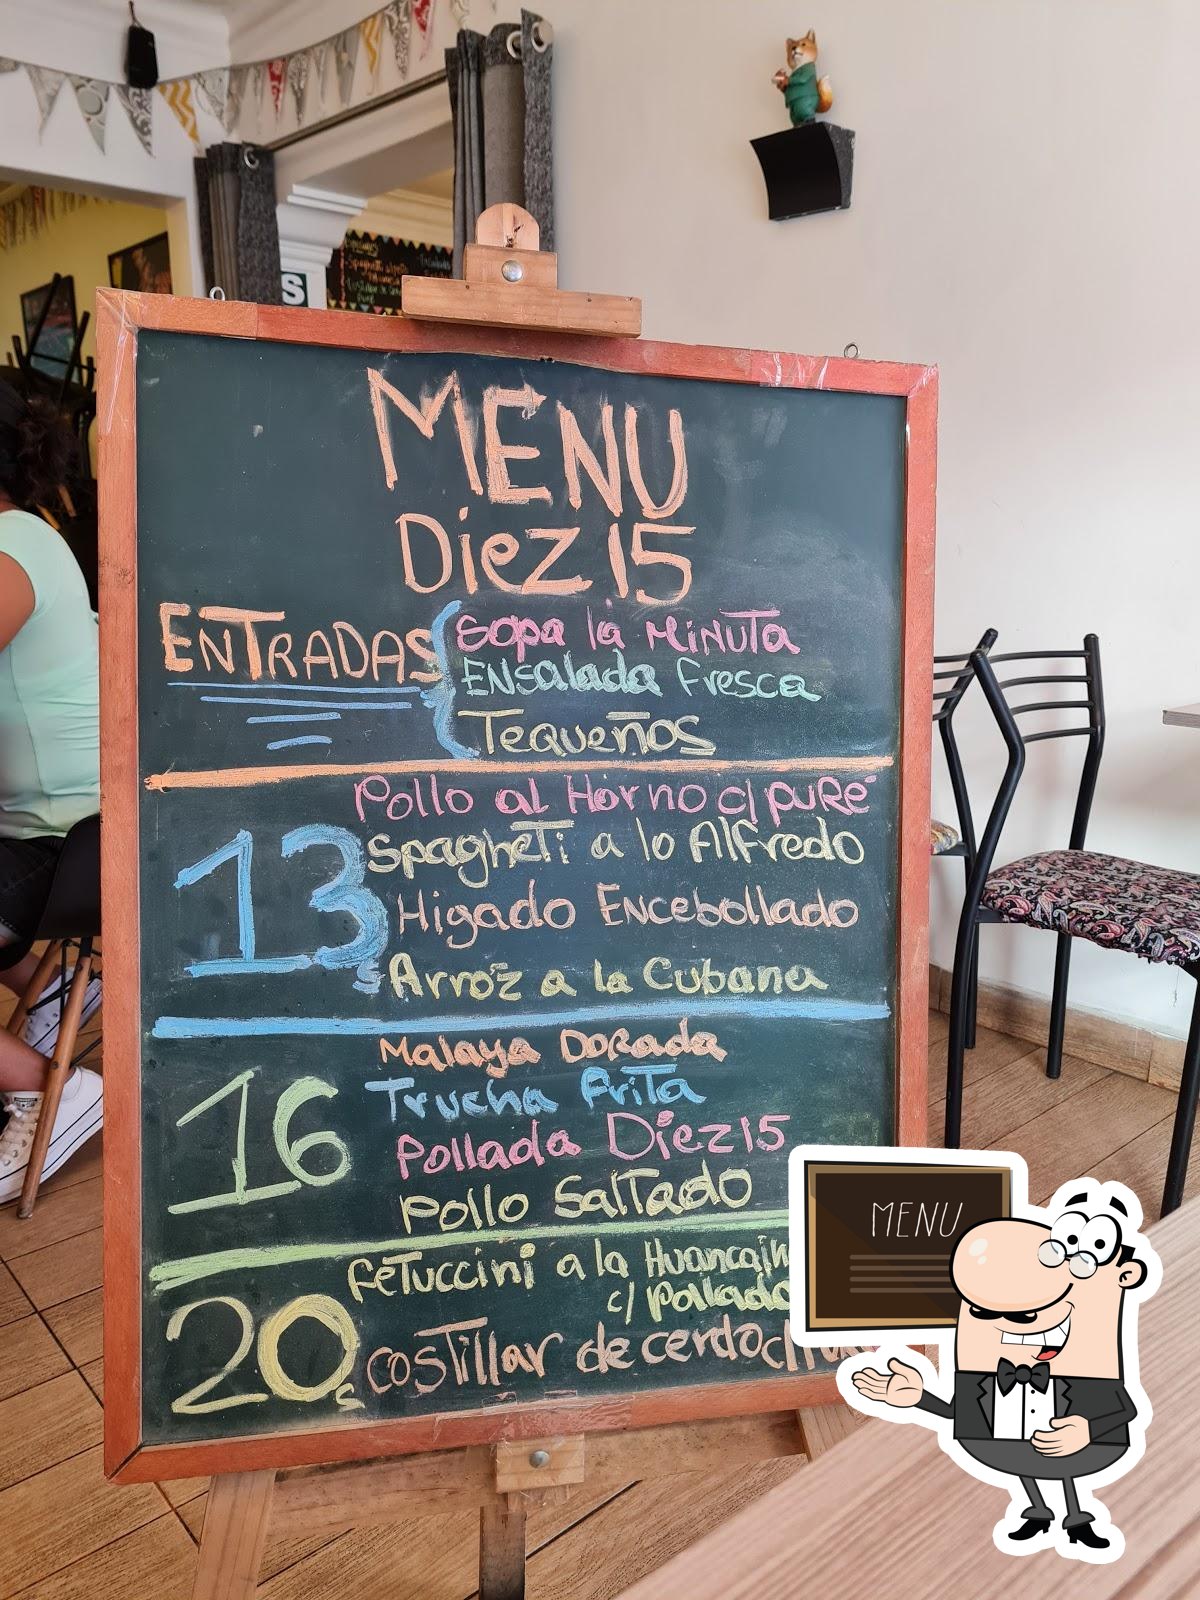 MENU
Diez 15
ENTRADAS
Sopa la Minuta
Ensalada Fresca
Tequeños
13s
Pollo al Horno c/ puré
Spagheti a lo Alfredo
Higado Encebollado
Arroz a la Cubana
16
Malaya Dorada
Trucha Frita
Pollada Diez 15
Pollo Saltado
20s
Fetuccini a la
c/ Pollada
Costillar de cerdo c/
MENU
S